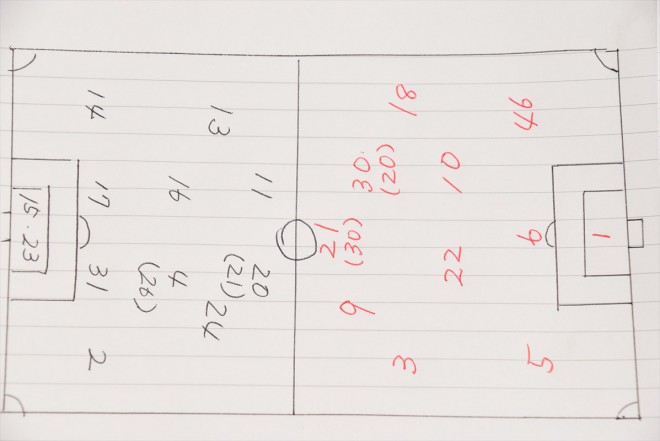 15.23
14 17 31 2
16 4
(28)
13 24
11 20
(21)
21
(30)
30 9
(20)
18 3
10 22
46 6 5
1